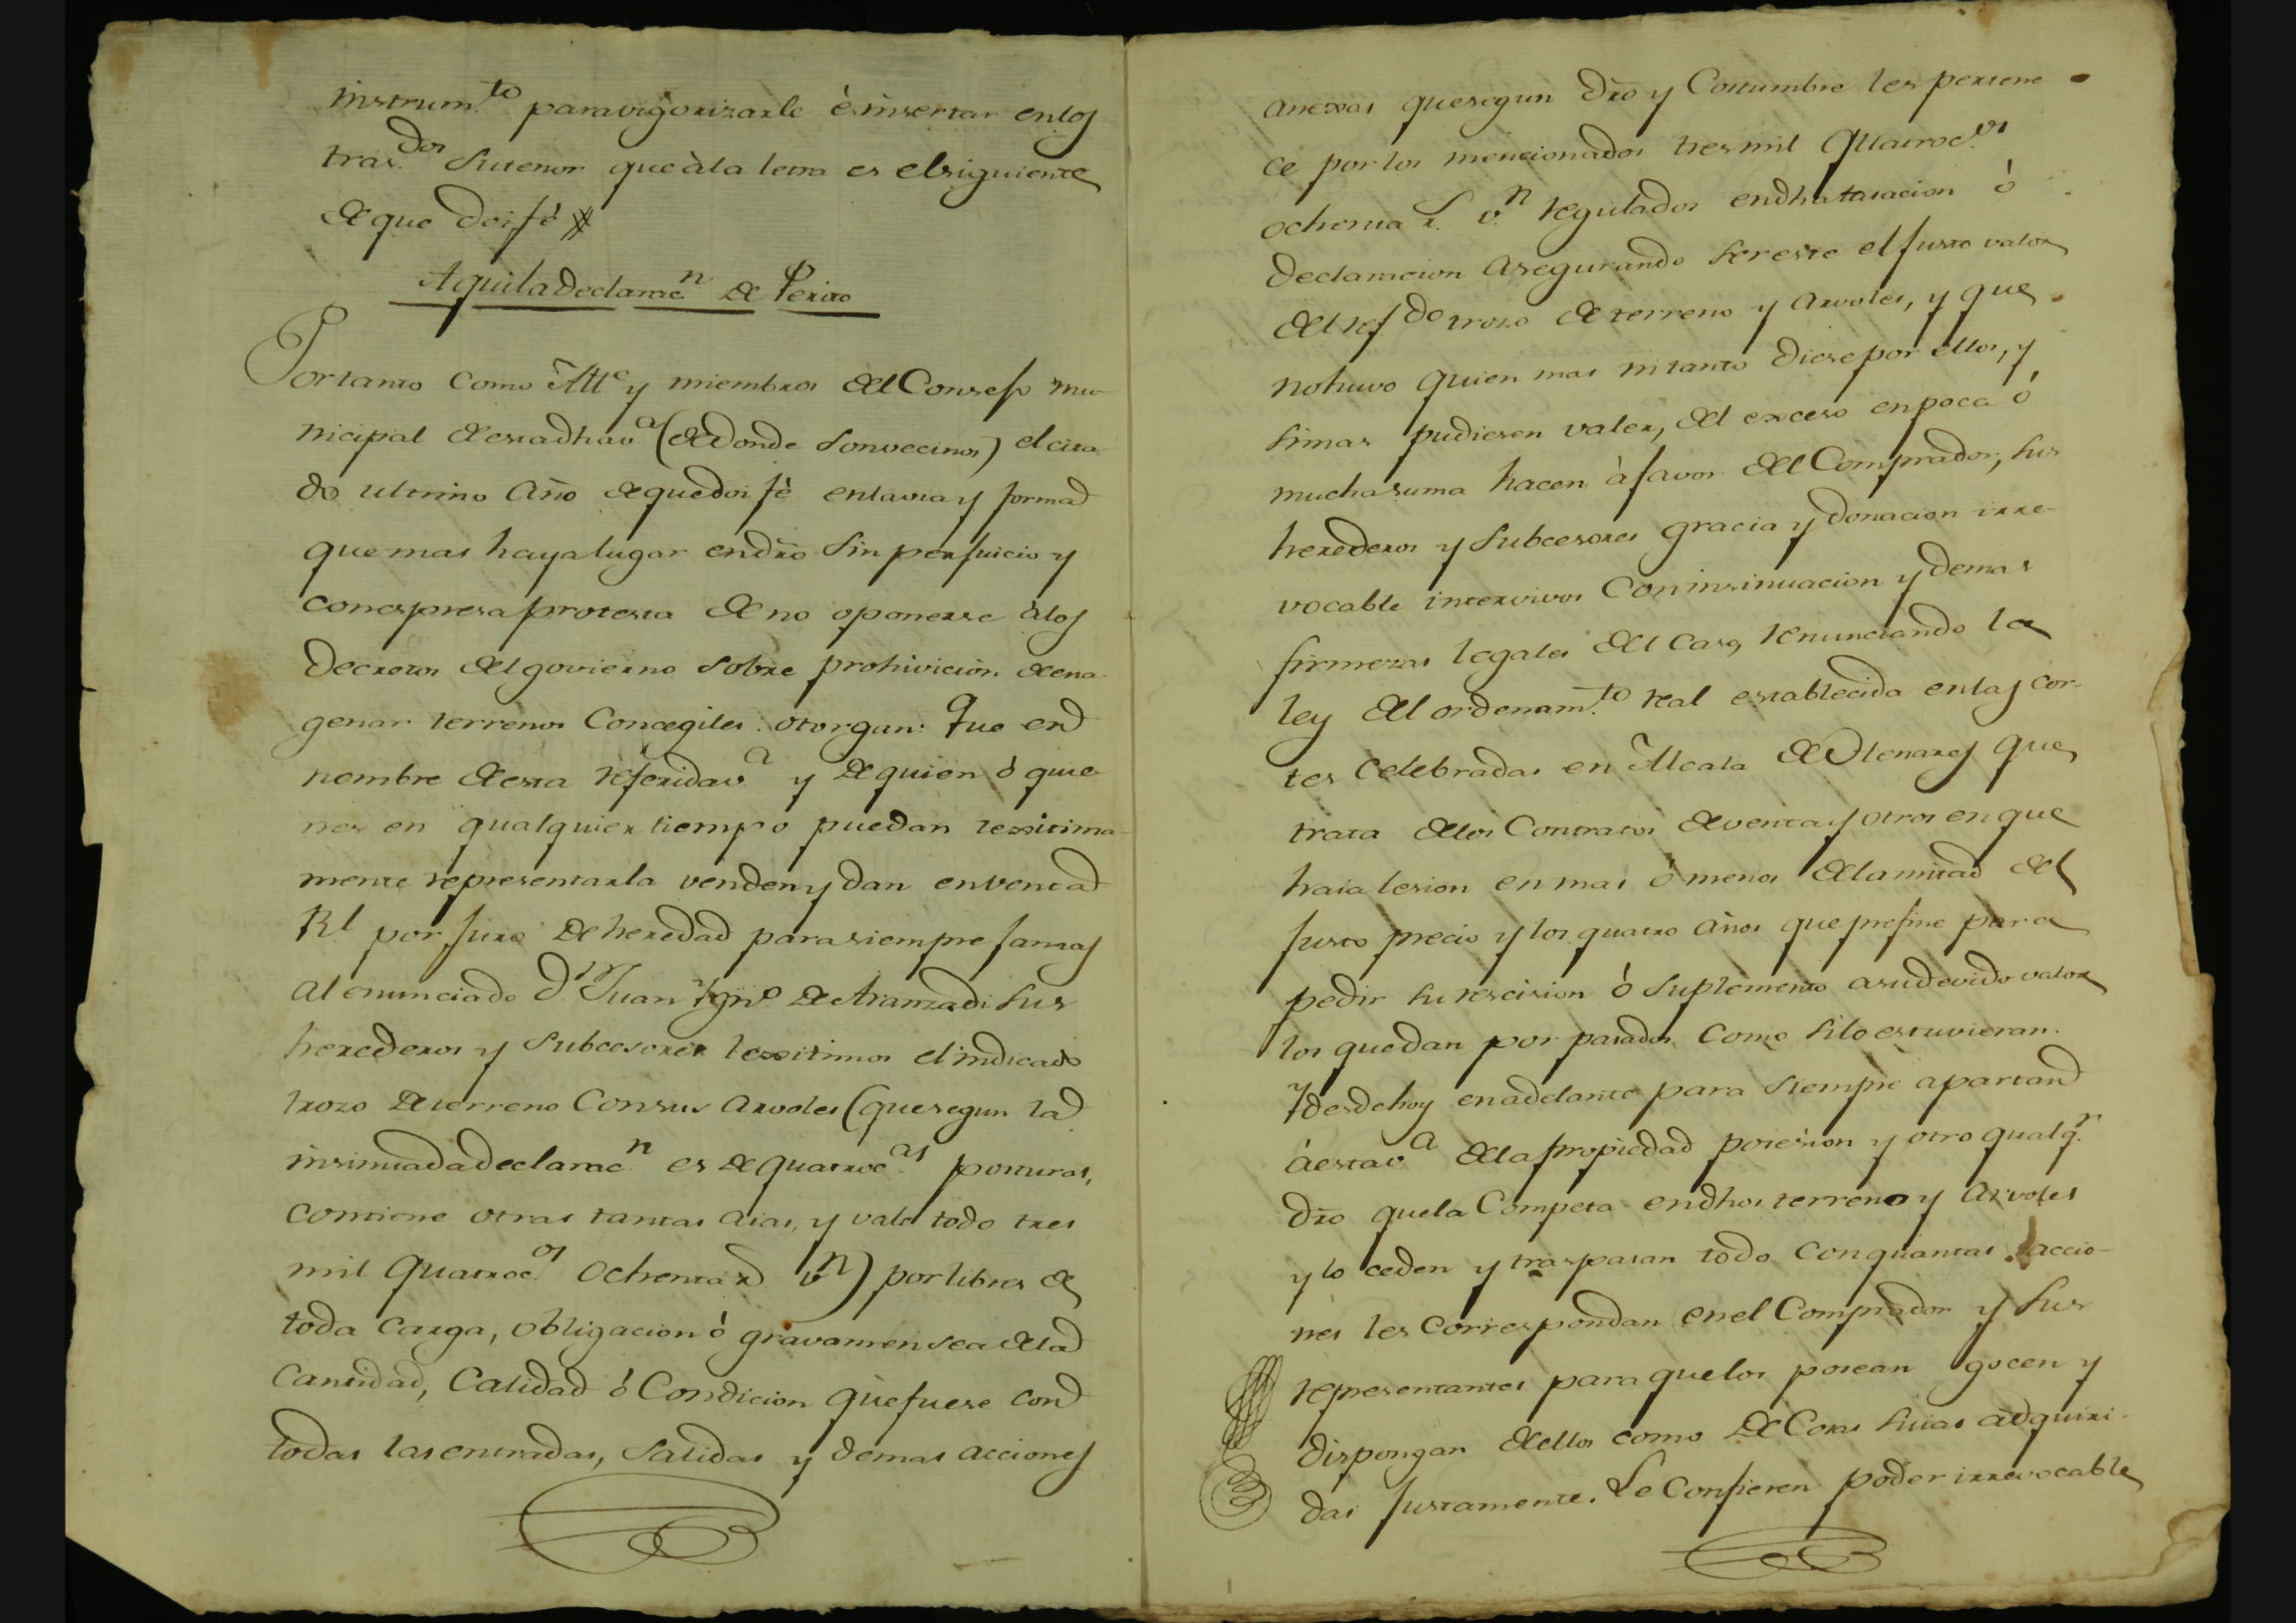 instrum.to para vigorizarle è insertar en los
tras.dos su tenor que à la letra es el siguiente
de que doi fè
Aqui la declarac.n de Perito
Portanto como Alc.e y miembros del Consejo mu-
nicipal de esta dha v.a (de donde son vecinos) el cita-
do ultimo año de que doi fè en la via y forma
que mas haya lugar en dro sin perjuicio y
con espresa protesta de no oponerse à los
decretos del govierno sobre prohivicion de ena-
genar terrenos Concegiles: otorgan: Que en
nombre de esta referida v.a y de quien ò quie-
nes en qualquier tiempo puedan lexitima-
mente representarla venden y dan en venta
Rl por juro de heredad para siempre jamas
al enunciado D.n Juan Ign.o de Aranzadi sus
herederos y subcesores lexitimos el indicado
trozo de terreno con sus arvoles (que segun la
insinuada declarac.n es de quatroc.as posturas,
contiene otras tantas aias, y vale todo tres
mil quatroc.os ochenta r.s v.n) por libres de
toda carga, obligacion ò gravamen sea de la
Cantidad, Calidad ó Condicion que fuere con
todas las entradas, salidas y demas acciones
anexas que segun dro y Costumbre les pertene-
ce por los mencionados tres mil quatroc.os
ochenta r.s v.n regulados en dha tasacion ò
declaracion asegurando ser este el justo valor
del ref.do trozo de terreno y arvoles, y que
no huvo quien mas ni tanto diese por ellos, y
si mas pudiesen valer, del exceso en poca ó
mucha suma hacen à favor del Comprador, sus
herederos y subcesores gracia y donacion irre-
vocable intervivos con insinuacion y demas
firmezas legales del caso, renunciando la
ley del ordenam.to real establecida en las cor-
tes celebradas en Alcala de Henares que
trata de los contratos de venta y otros en que
haia lesion en mas ó menos de la mitad del
justo precio y los quatro años que prefine para
pedir su rescision ó suplemento a su devido valor
los que dan por pasados como si lo estuvieran.
Y desde hoy en adelante para siempre apartan
á esta v.a de la propiedad posesion y otro qualq.r
dro que la Competa en dhos terreno y arvoles
y lo ceden y traspasan todo con quantas accio-
nes les correspondan en el Comprador y sus
representantes para que los posean gocen y
dispongan de ellos como de Cosas suias adquiri-
das justamente. Le Confieren poder irrevocable